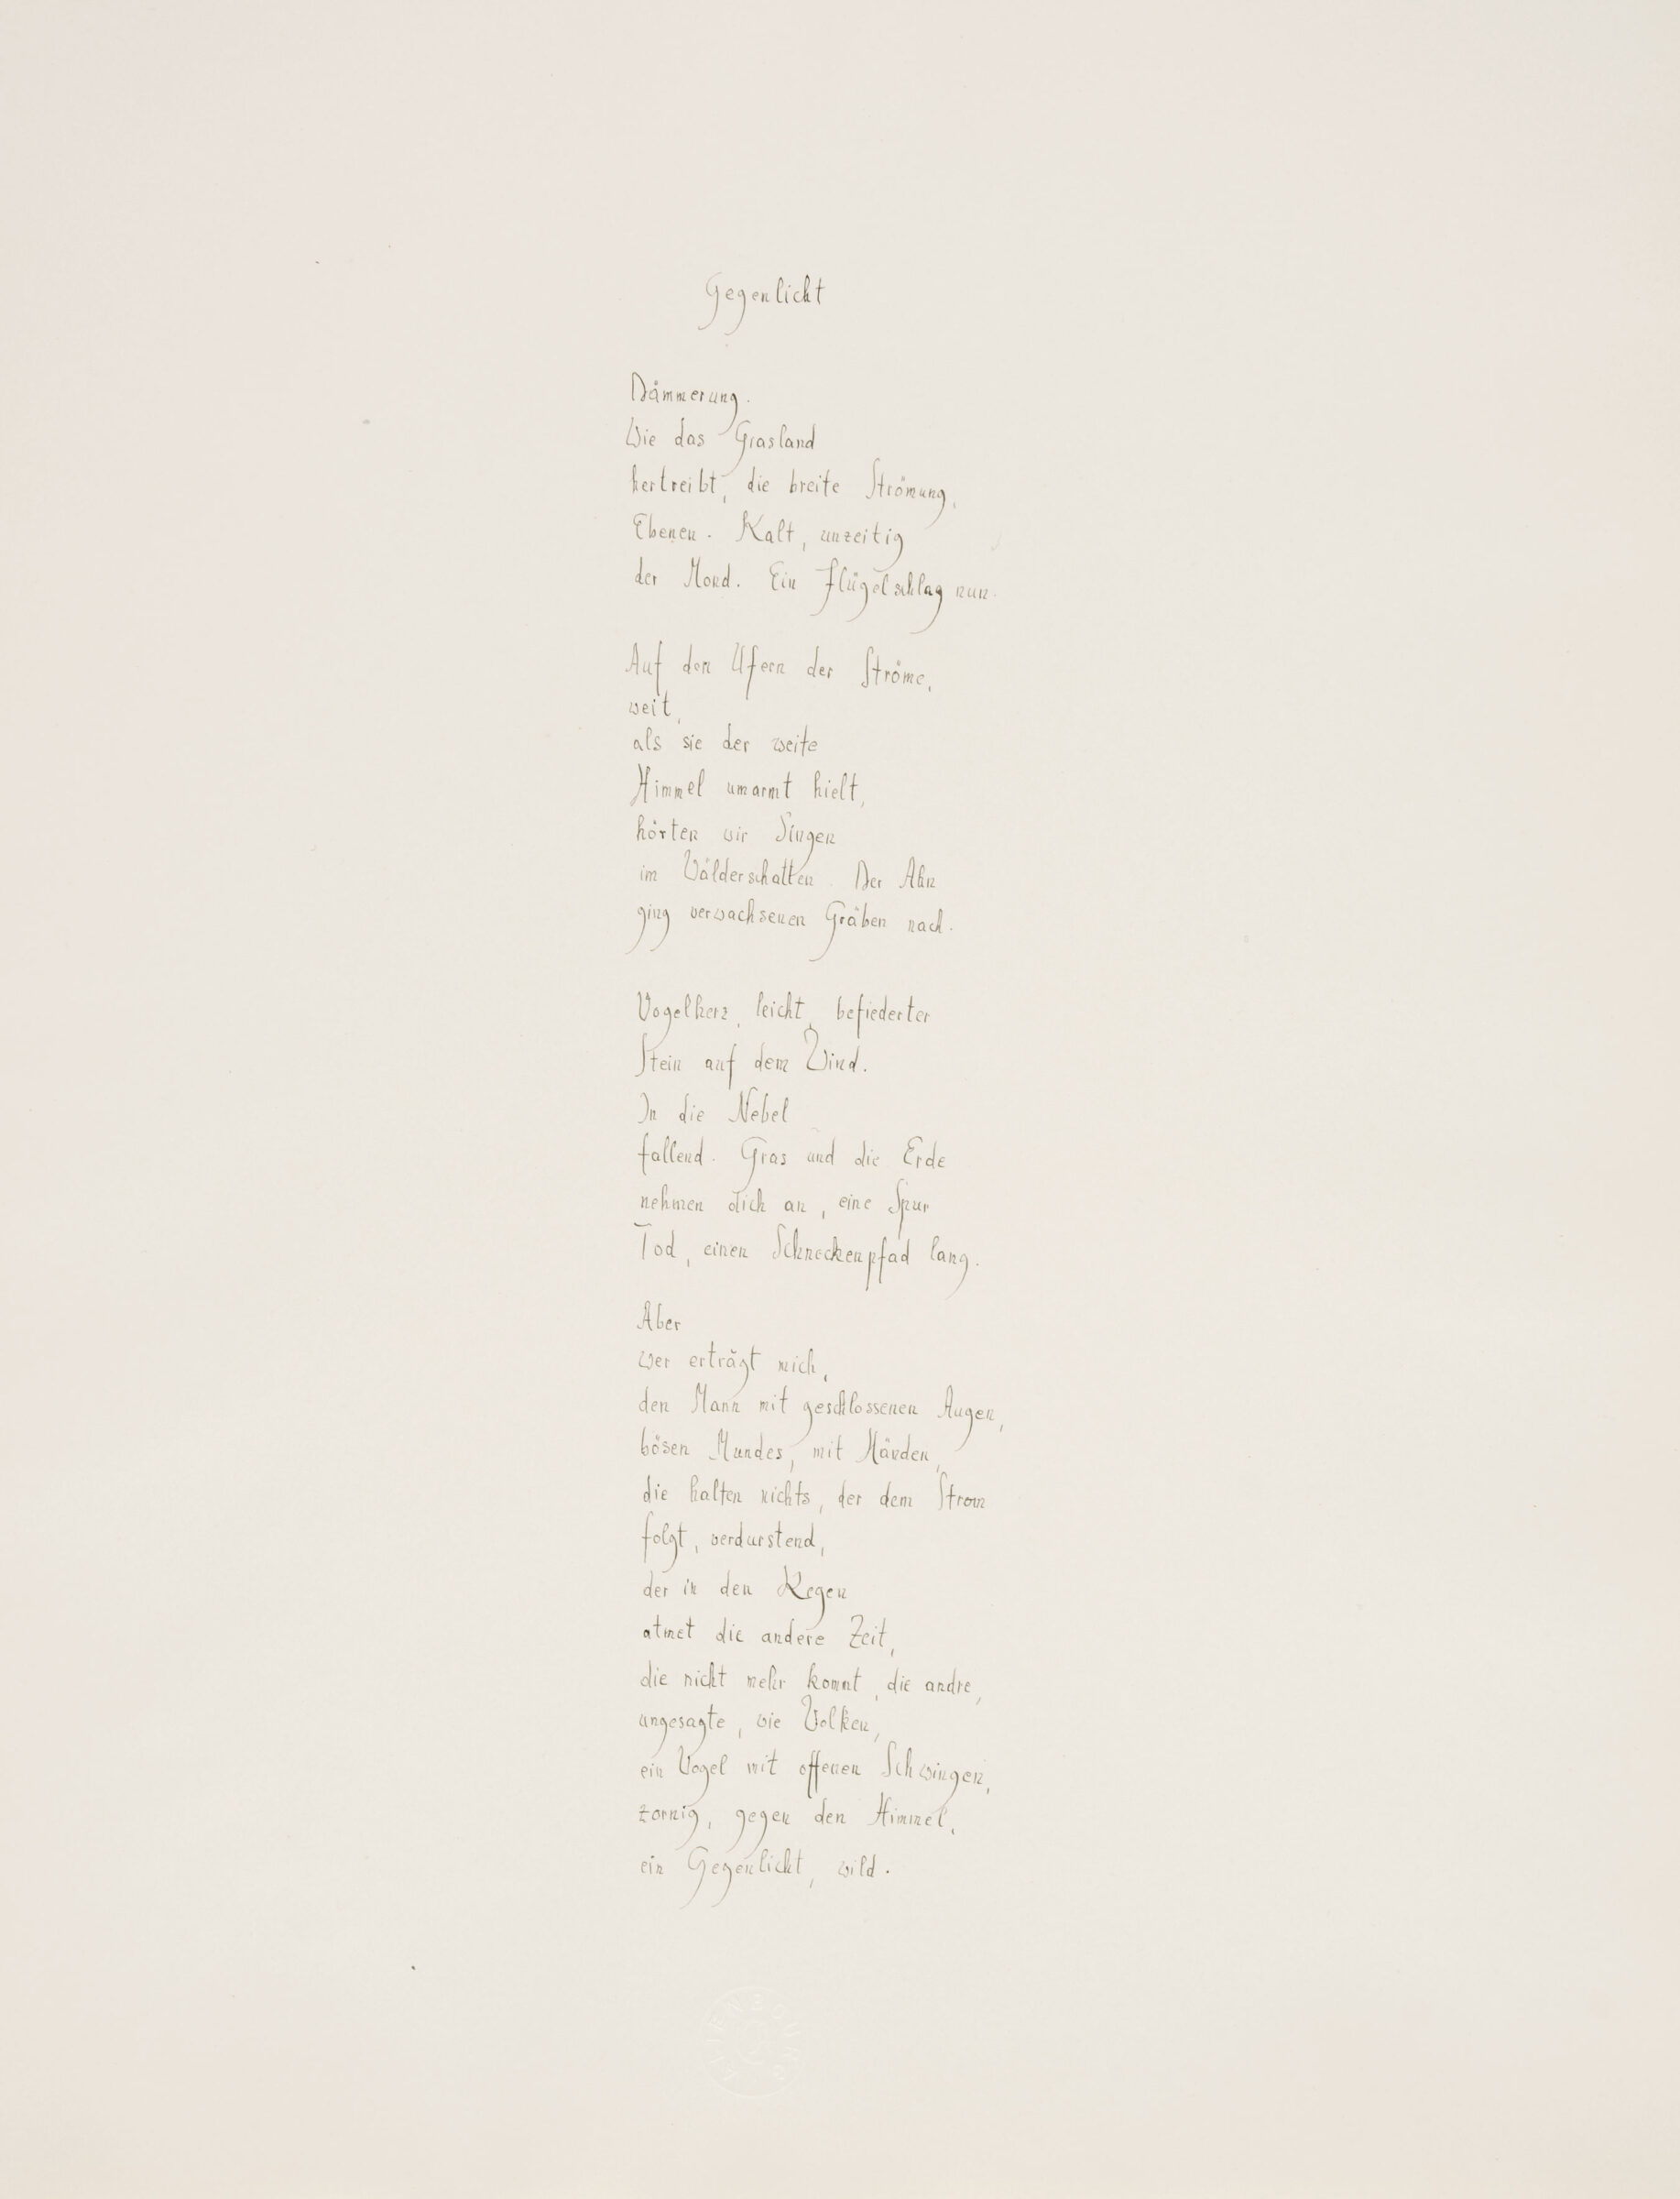 Gegenlicht
Dämmerung.
Wie das Grasland
hertreibt, die breite Strömung,
Ebenen. Kalt, unzeitig
der Mond. Ein Flügelschlag nun.
Auf den Ufern der Ströme,
weit,
als sie der weite
Himmel umarmt hielt,
hörten wir Singen
im Wälderschatten. Der Ahn
ging verwachsenen Gräben nach.
Vogelherz, leicht, befiederter
Stein auf dem Wind.
In die Nebel
fallend. Gras und die Erde
nehmen dich an, eine Spur
Tod, einen Schneckenpfad lang.
Aber
wer erträgt mich,
den Mann mit geschlossenen Augen,
bösen Mundes, mit Händen,
die halten nichts, der dem Strom
folgt, verdurstend,
der in den Regen
atmet die andere Zeit,
die nicht mehr kommt, die andre,
ungesagte, wie Wolken,
ein Vogel mit offenen Schwingen,
zornig, gegen den Himmel,
ein Gegenlicht, wild.